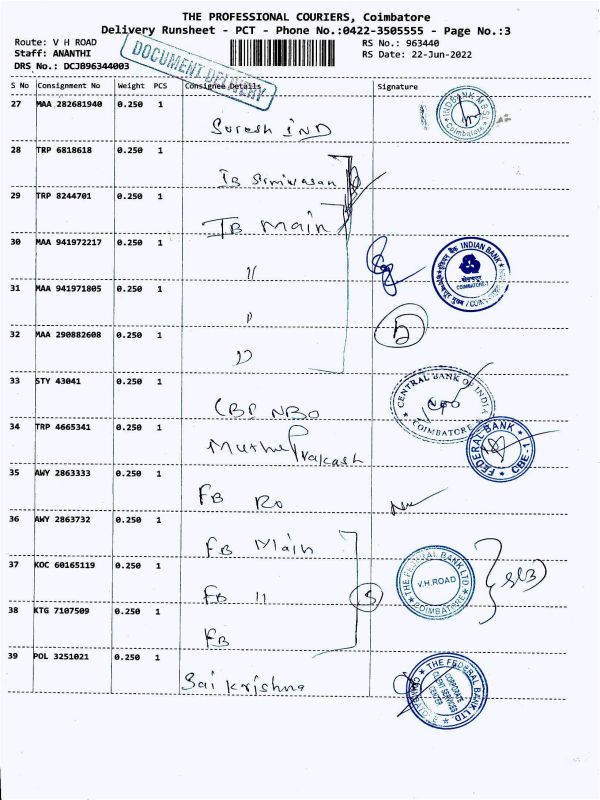 THE PROFESSIONAL COURIERS, Coimbatore
Delivery Runsheet - PCT - Phone No.:0422-3505555 - Page No.:3
Route: V H ROAD RS No.: 963440
Staff: ANANTHI RS Date: 22-Jun-2022
DRS No.: DCJB96344003
DOCUMENT DELIVERY
S No Consignment No Weight PCS Consignee Details Signature
27 MAA 282681940 0.250 1
Suresh IND
INDBANK MBSL Coimbatore
28 TRP 6818618 0.250 1
IB Srinivasan
29 TRP 8244701 0.250 1
IB Main
30 MAA 941972217 0.250 1
"
INDIAN BANK COIMBATORE-1
31 MAA 941971805 0.250 1
"
32 MAA 290882608 0.250 1
"
33 STY 43041 0.250 1
CBI NBO
CENTRAL BANK OF INDIA NBO COIMBATORE
34 TRP 4665341 0.250 1
Muthu Prakash
FEDERAL BANK CBE-1
35 AWY 2863333 0.250 1
FB Ro
36 AWY 2863732 0.250 1
FB Main
37 KOC 60165119 0.250 1
FB "
THE FEDERAL BANK LTD. V.H.ROAD COIMBATORE
38 KTG 7107509 0.250 1
FB
39 POL 3251021 0.250 1
Sai Krishna
THE FEDERAL BANK LTD. CORPORATE CLIENT SERVICES CENTER